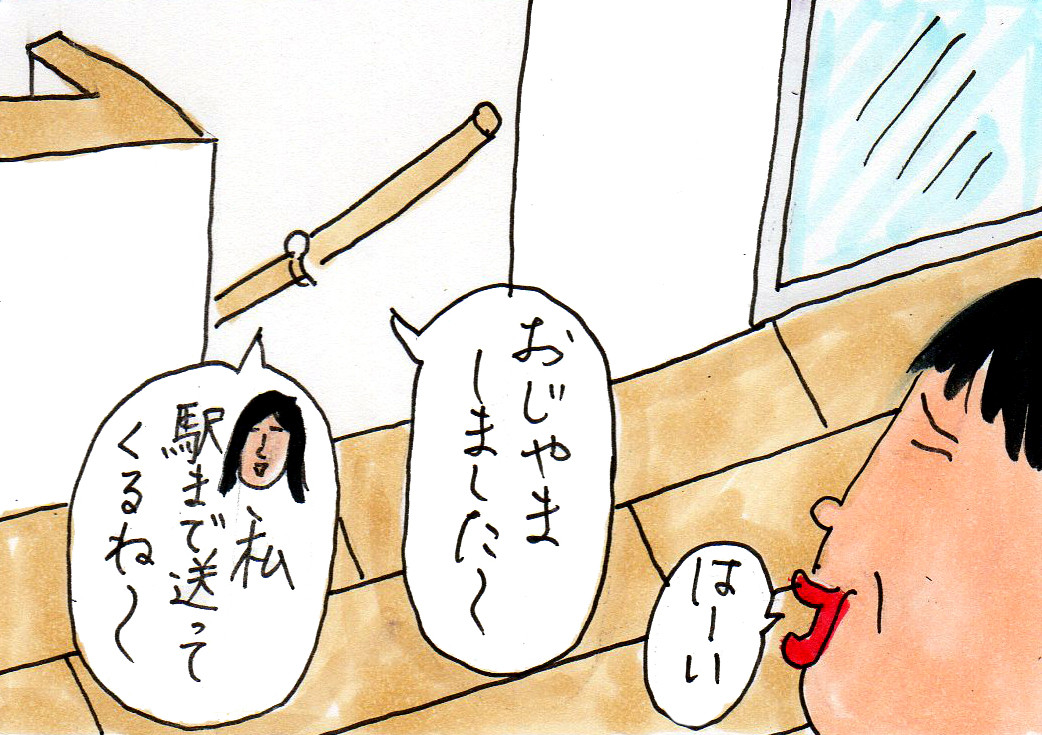 おじゃま
しました〜
私
駅まで送って
くるね〜
はーい